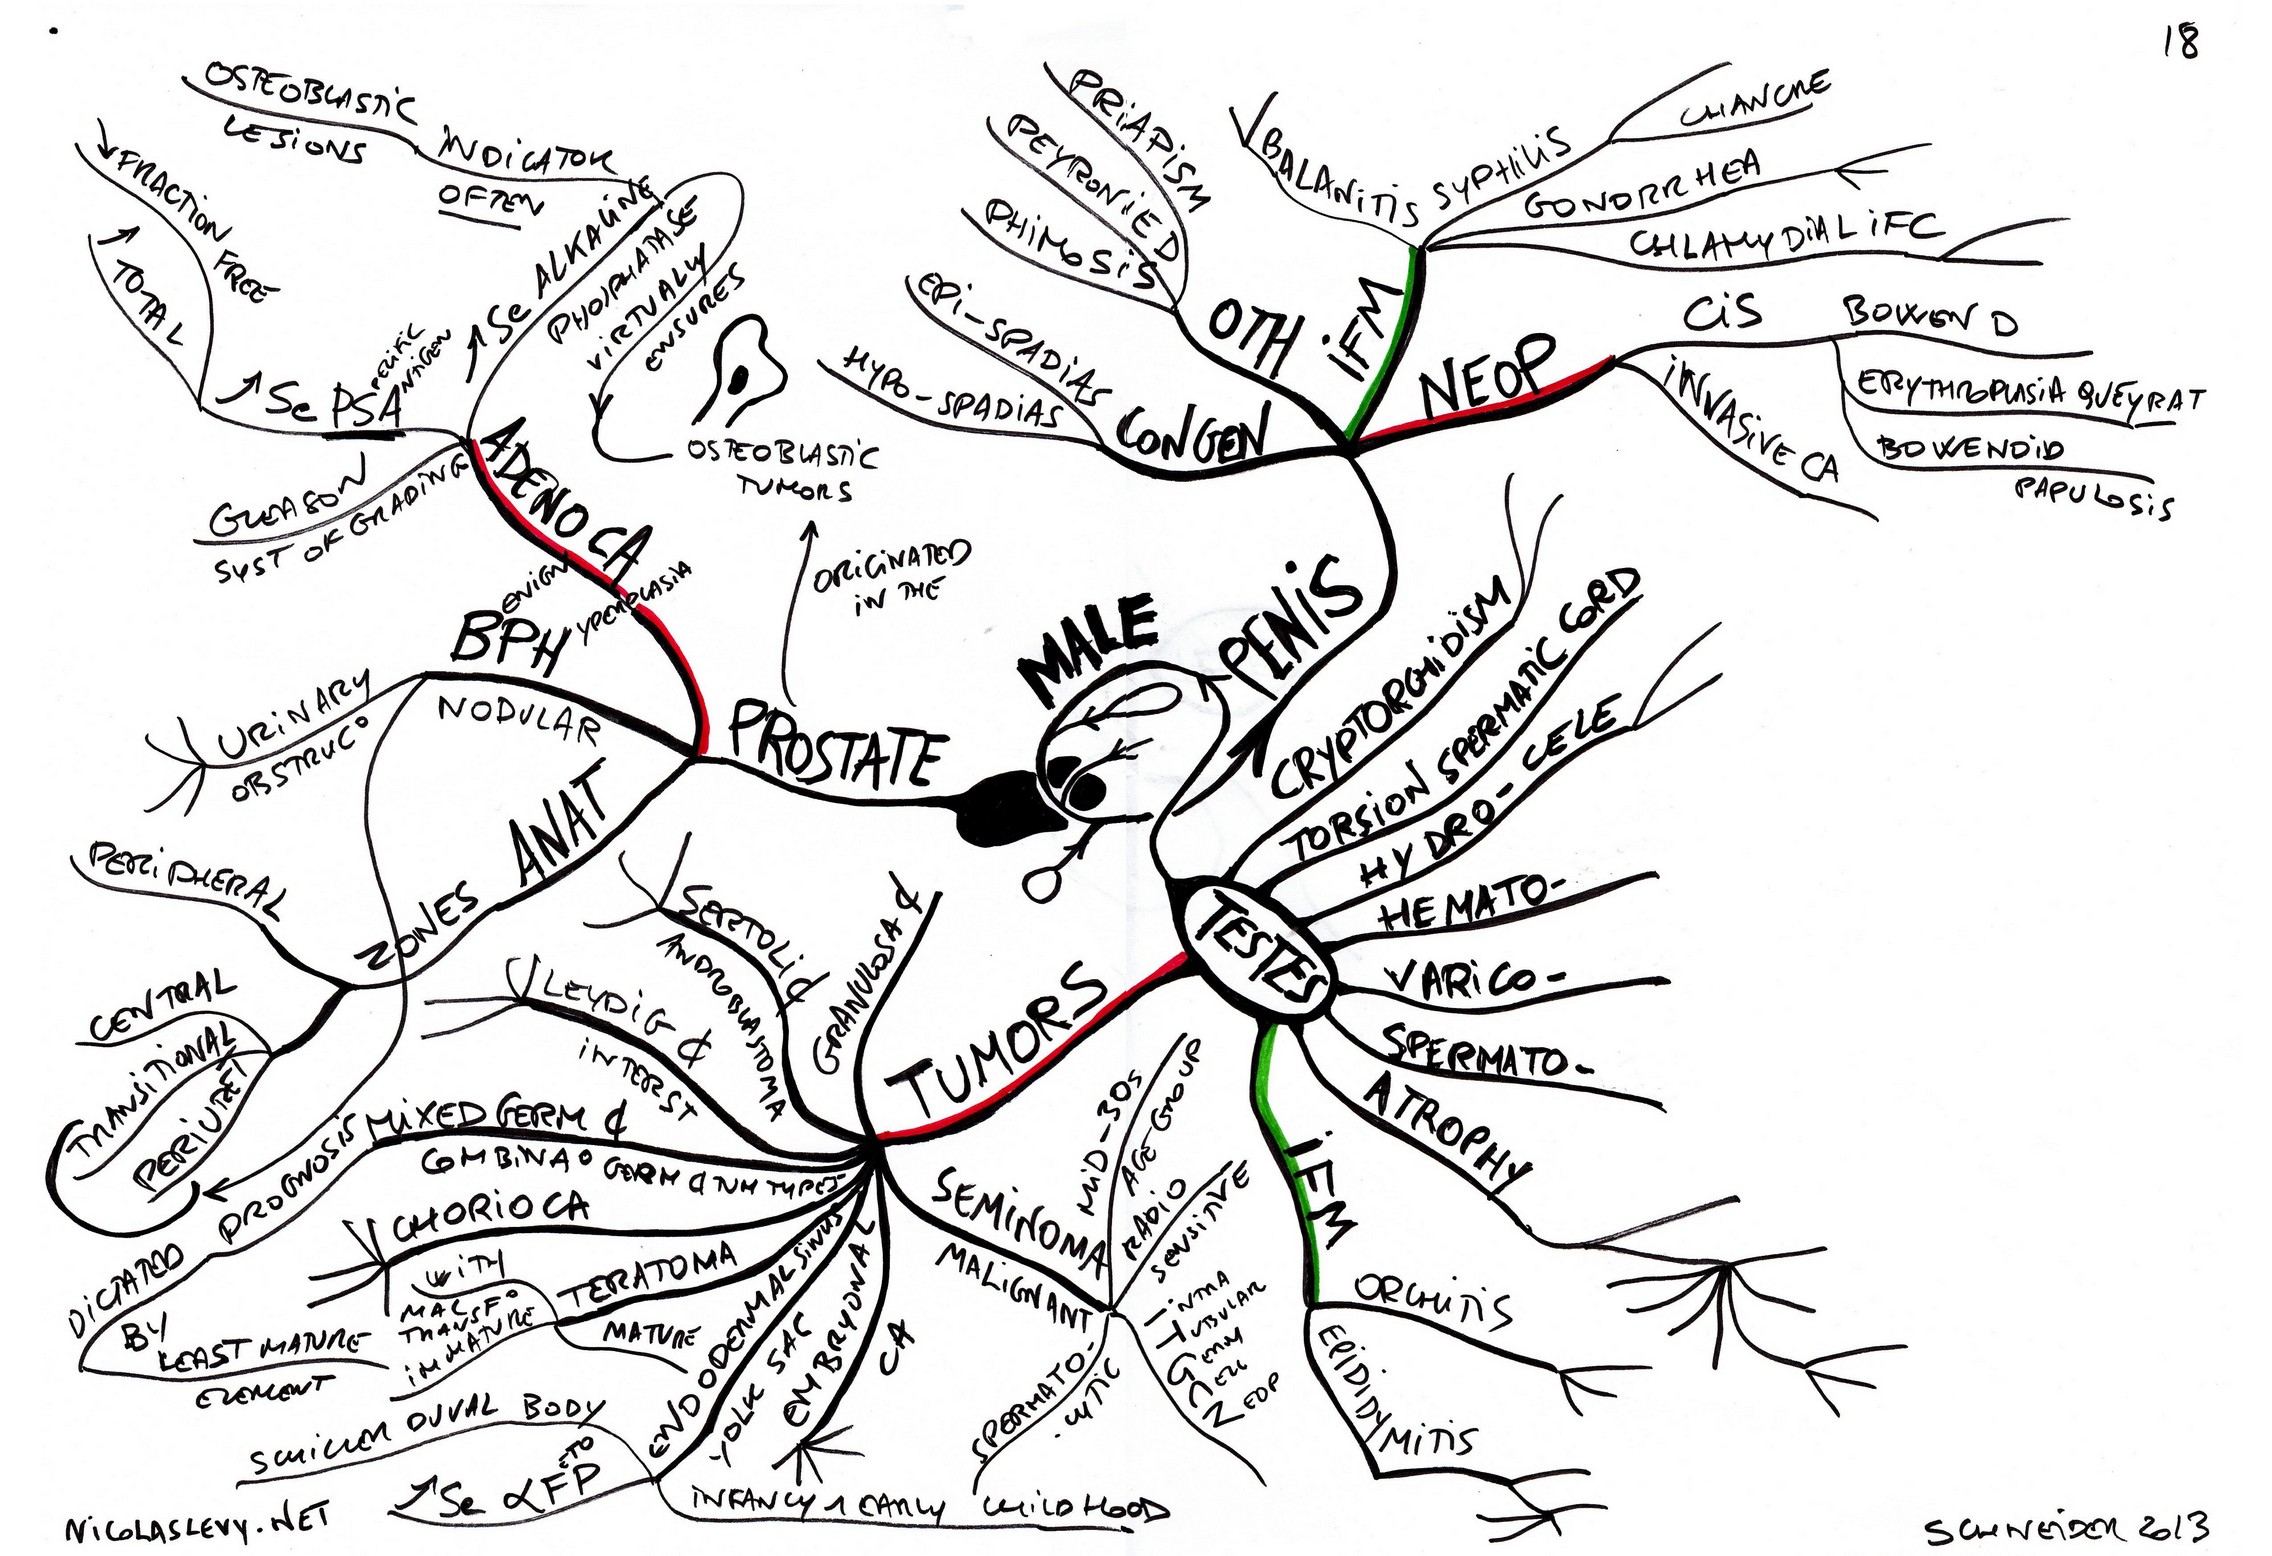 18
MALE
PENIS
CONGEN
EPI-SPADIAS
HYPO-SPADIAS
OTH
PRIAPISM
PEYRONIE D
PHIMOSIS
IFM
BALANITIS
SYPHILIS
CHANCRE
GONORRHEA
CHLAMYDIAL IFC
NEOP
CIS
BOWEN D
ERYTHROPLASIA QUEYRAT
BOWENOID
PAPULOSIS
INVASIVE CA
TESTES
CRYPTORCHIDISM
TORSION SPERMATIC CORD
HYDRO-CELE
HEMATO-
VARICO-
SPERMATO-
ATROPHY
IFM
ORCHITIS
EPIDIDY
MITIS
TUMORS
SEMINOMA
MALIGNANT
MID-30S
AGE-GROUP
RADIO
SENSITIVE
INTRA
TUBULAR
GERM
CELL
NEOP
SPERMATO-
CYTIC
EMBRYONAL
CA
ENDODERMAL SINUS
YOLK SAC
SCHILLER DUVAL BODY
↗ Se αFETOP
INFANCY & EARLY CHILDHOOD
TERATOMA
MATURE
IMMATURE
WITH
MAL
TRANSF°
CHORIOCA
MIXED GERM ¢
COMBINA° GERM ¢ TUM TYPES
PROGNOSIS
DICTATED
BY
LEAST MATURE
ELEMENT
LEYDIG ¢
INTERST
SERTOLI ¢
ANDROBLASTOMA
GRANULOSA ¢
PROSTATE
ORIGINATED
IN THE
OSTEOBLASTIC
TUMORS
ADENOCA
↗ Se ALKALINE
PHOSPHATASE
VIRTUALLY
ENSURES
INDICATOR
OFTEN
OSTEOBLASTIC
LESIONS
↗ Se PSA
SPECIFIC
ANTIGEN
↘ FRACTION FREE
↗ TOTAL
GLEASON
SYST OF GRADING
BPH
ENIGN
YPERPLASIA
NODULAR
URINARY
OBSTRUC°
ANAT
ZONES
PERIPHERAL
CENTRAL
TRANSITIONAL
PERIURET
NICOLASLEVY.NET
SCHNEIDER 2013